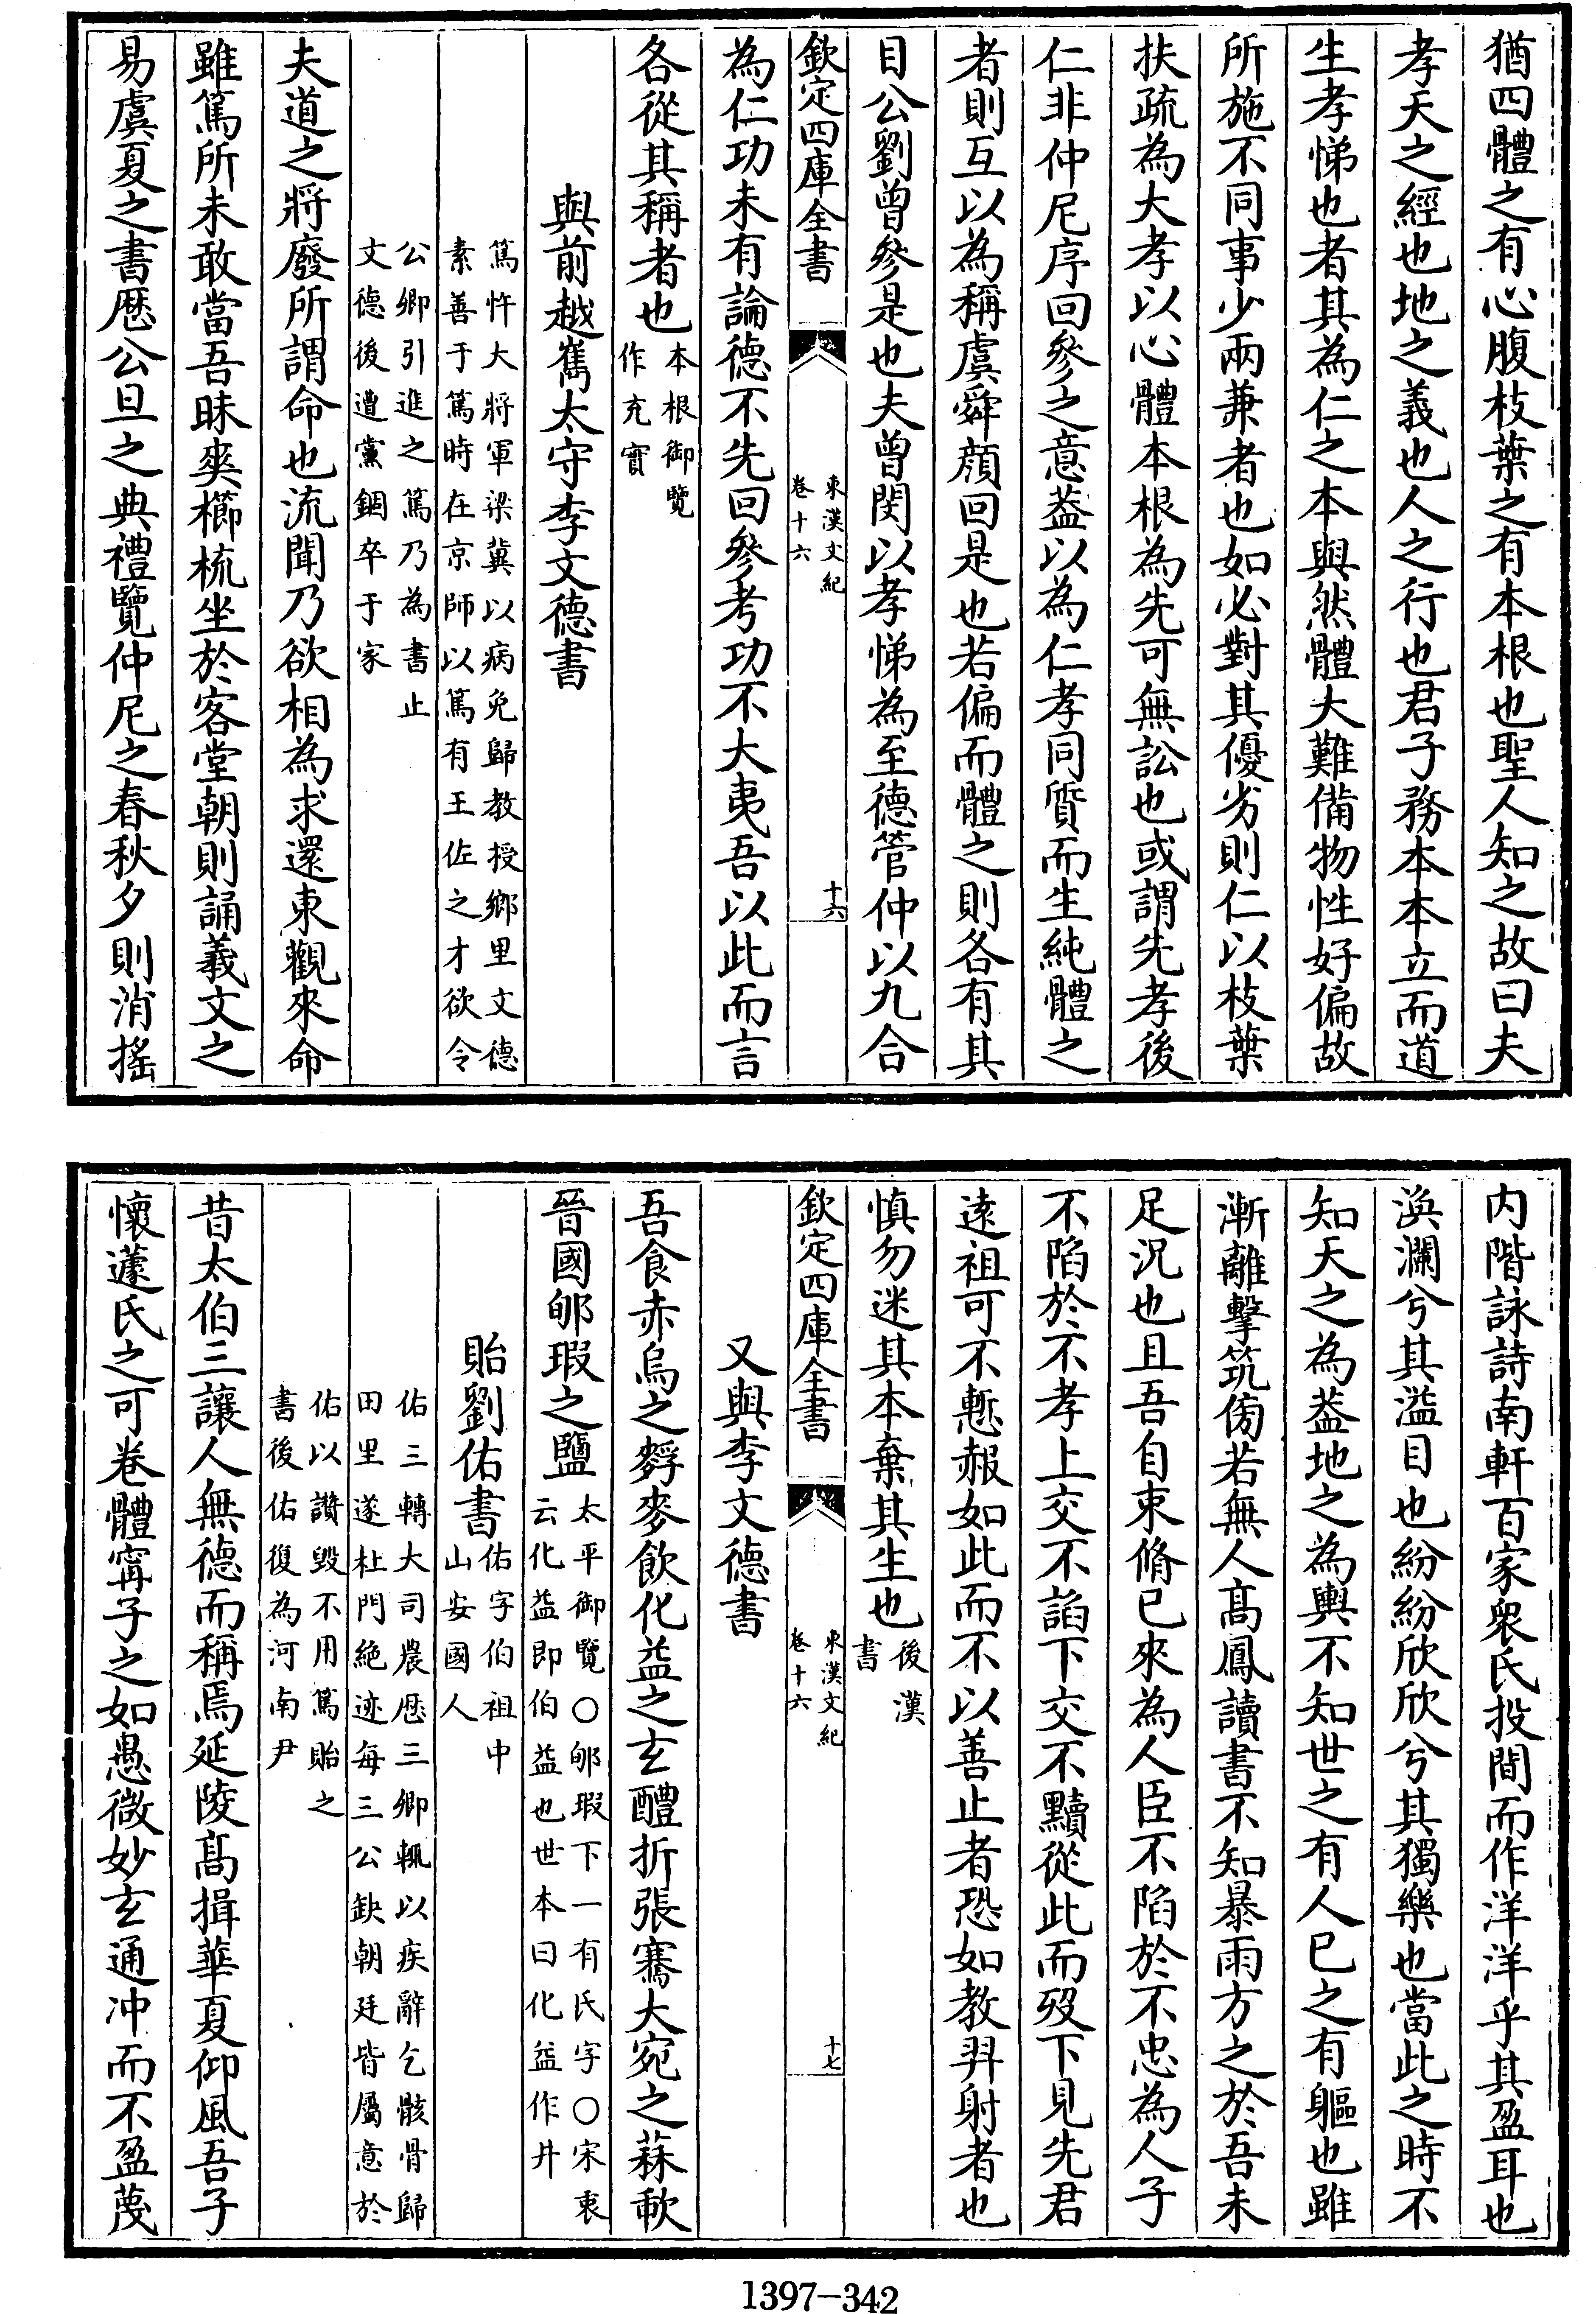 猶四體之有心腹枝葉之有本根也聖人知之故曰夫
孝天之經也地之義也人之行也君子務本本立而道
生孝悌也者其為仁之本與然體大難備物性好偏故
所施不同事少兩兼者也如必對其優劣則仁以枝葉
扶疏為大孝以心體本根為先可無訟也或謂先孝後
仁非仲尼序回參之意葢以為仁孝同質而生純體之
者則互以為稱虞舜顔回是也若偏而體之則各有其
目公劉曾參是也夫曾閔以孝悌為至德管仲以九合
欽定四庫全書
東漢文紀
卷十六
十六
為仁功未有論德不先回參考功不大夷吾以此而言
各從其稱者也
本根御覽
作充實
與前越嶲太守李文德書
篤忤大將軍梁冀以病免歸教授鄉里文德
素善于篤時在京師以篤有王佐之才欲令
公卿引進之篤乃為書止
文德後遭黨錮卒于家
夫道之將廢所謂命也流聞乃欲相為求還東觀來命
雖篤所未敢當吾昧爽櫛梳坐於客堂朝則誦羲文之
易虞夏之書歴公旦之典禮覽仲尼之春秋夕則消搖
内階詠詩南軒百家衆氏投間而作洋洋乎其盈耳也
渙瀾兮其溢目也紛紛欣欣兮其獨樂也當此之時不
知天之為葢地之為輿不知世之有人已之有軀也雖
漸離擊筑傍若無人髙鳳讀書不知暴雨方之於吾未
足況也且吾自束脩已來為人臣不陷於不忠為人子
不陷於不孝上交不諂下交不黷從此而歿下見先君
逺祖可不慙赧如此而不以善止者恐如教羿射者也
慎勿迷其本棄其生也
後漢
書
欽定四庫全書
東漢文紀
卷十六
十七
又與李文德書
吾食赤烏之麰麥飲化益之玄醴折張騫大宛之蒜歃
晉國郇瑕之鹽
太平御覽○郇瑕下一有氏字○宋衷
云化益即伯益也世本曰化益作井
貽劉佑書
佑字伯祖中
山安國人
佑三轉大司農歴三卿輒以疾辭乞骸骨歸
田里遂杜門絶迹每三公缺朝廷皆屬意於
佑以讚毀不用篤貽之
書後佑復為河南尹
昔太伯三讓人無德而稱焉延陵髙揖華夏仰風吾子
懷蘧氏之可卷體甯子之如愚微妙玄通冲而不盈蔑
1397-342